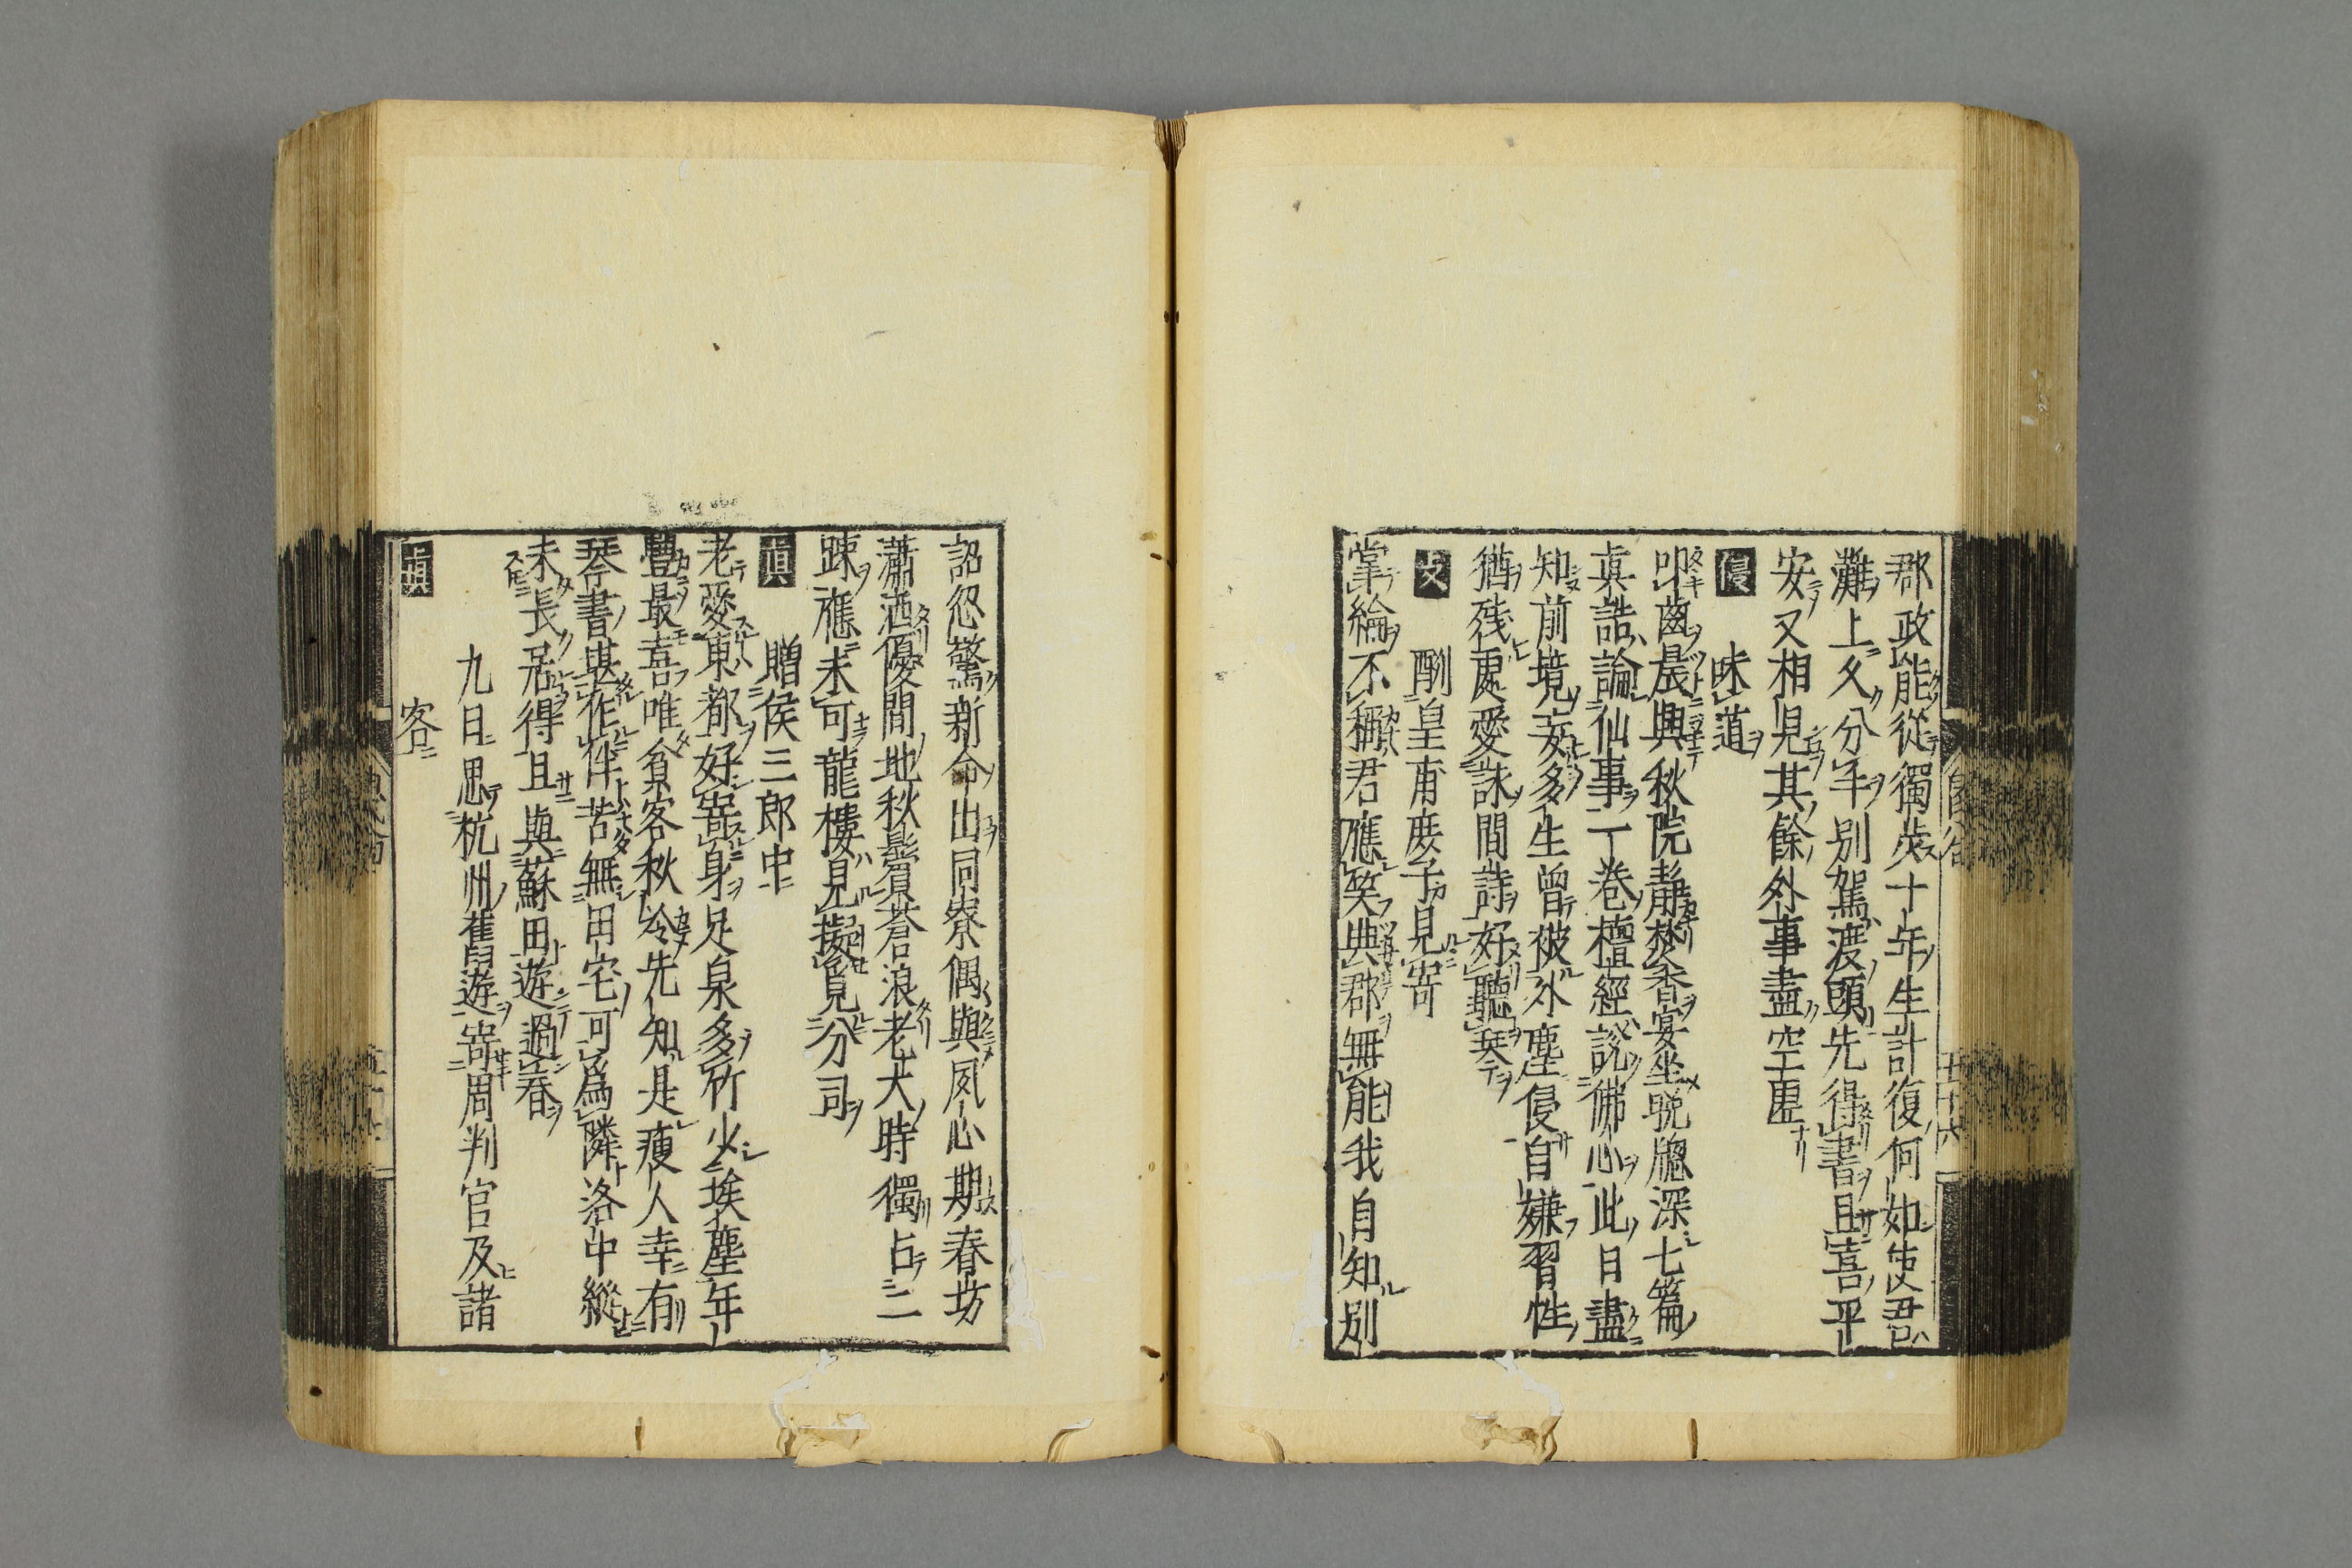 郡政能從獨歩十年生計復何如使君
灘上久分手別駕渡頭先得書且喜平
安又相見其餘外事盡空虛
侵 味道
叩齒晨興秋院靜焚香宴坐晩牕深七篇
真誥論仙事一巻檀經說佛心此日盡
知前境妄多生曽被外塵侵自嫌習性
猶残處愛詠閒詩好聽琴
支 酬皇甫庶子見寄
掌綸不稱君應笑典郡無能我自知別
詔忽驚新命出同寮偶與夙心期春坊
瀟洒優閒地秋鬢蒼浪老大時獨占二
踈應未可龍樓見擬覓分司
真 贈侯三郎中
老愛東都好寄身足泉多竹少埃塵年
豐最喜唯貧客秋冷先知是瘦人幸有
琴書堪作伴苦無田宅可爲隣洛中縱
未長居得且與蘇田遊過春
九日思杭州舊遊寄周判官及諸
真 客